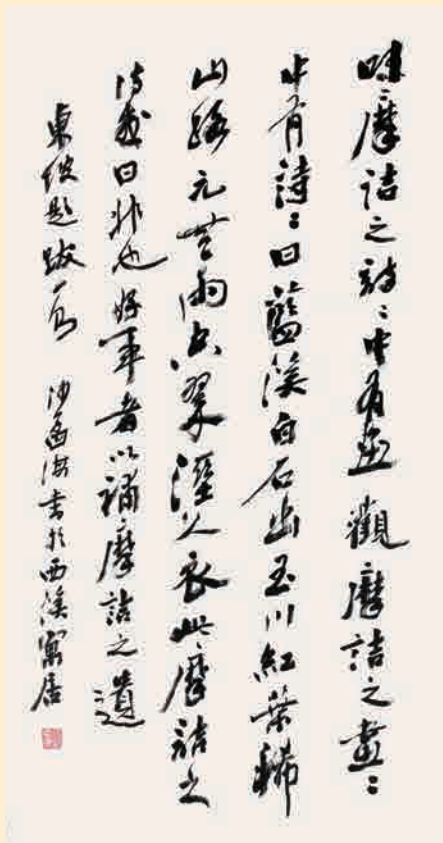 味摩詰之詩〻中有畫觀摩詰之畫〻
中有詩〻曰藍溪白石出玉川紅葉稀
山路元無雨空翠溼人衣此摩詰之
詩或曰非也好事者以補摩詰之遺
東坡題跋一 沙海書於西溪寓居